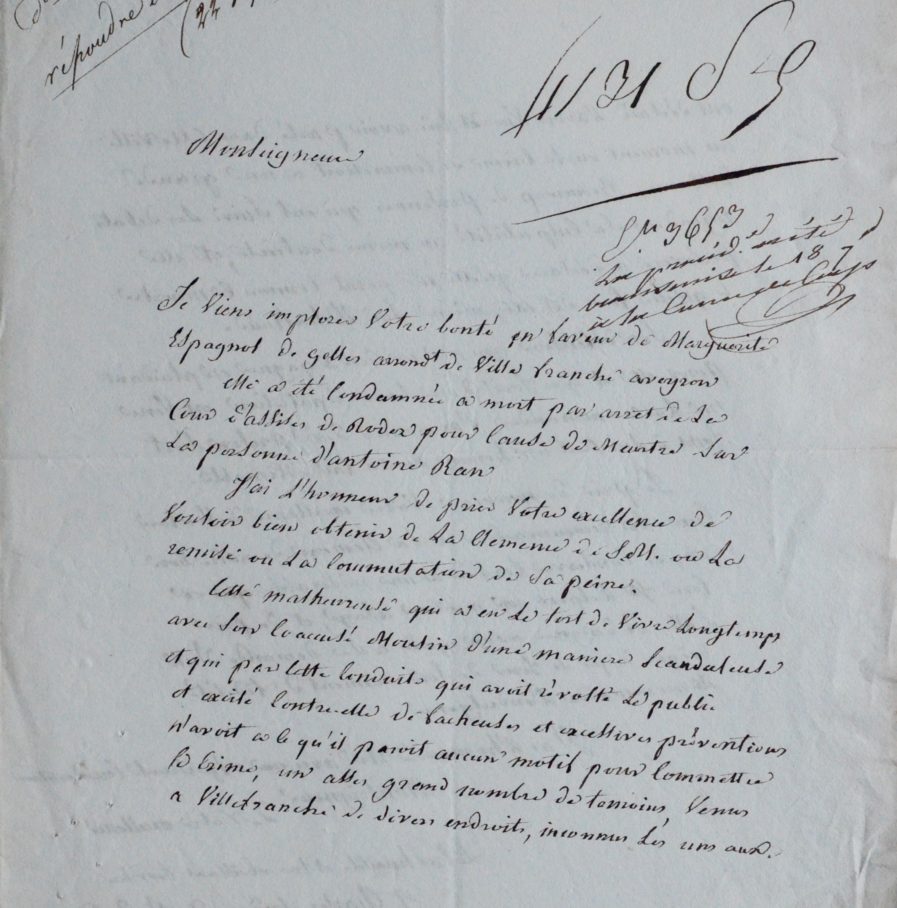 répondre
(22
4131 S 9
Monseigneur
Sn. 3653
La procéd. a été
transmise le 18 7
à la Cour de
Je viens implorer Votre bonté en faveur de Marguerite
Espagnol de Gelles arrondt de Ville franche aveyron
elle a été Condamnée a mort par arret de La
Cour d'assises de Rodez pour Cause de Meurtre Sur
La personne d'antoine Ran
J'ai L'honneur de prier Votre excellence de
Vouloir bien obtenir de La Clemence de S.M. ou La
remise ou La Commutation de Sa peine.
Cette malheureuse qui a eu Le tort de Vivre Longtemps
avec Son Coaccusé Moulin d'une maniere Scandaleuse
et qui par Cette Conduite qui avoit révolté Le public
et excité Contre-elle de facheuses et excessives préventions
n'avoit a Ce qu'il paroit aucun motif pour Commettre
Ce Crime, un asses grand nombre de temoins, Venus
a Villefranche de divers endroits, inconnus Les uns aux